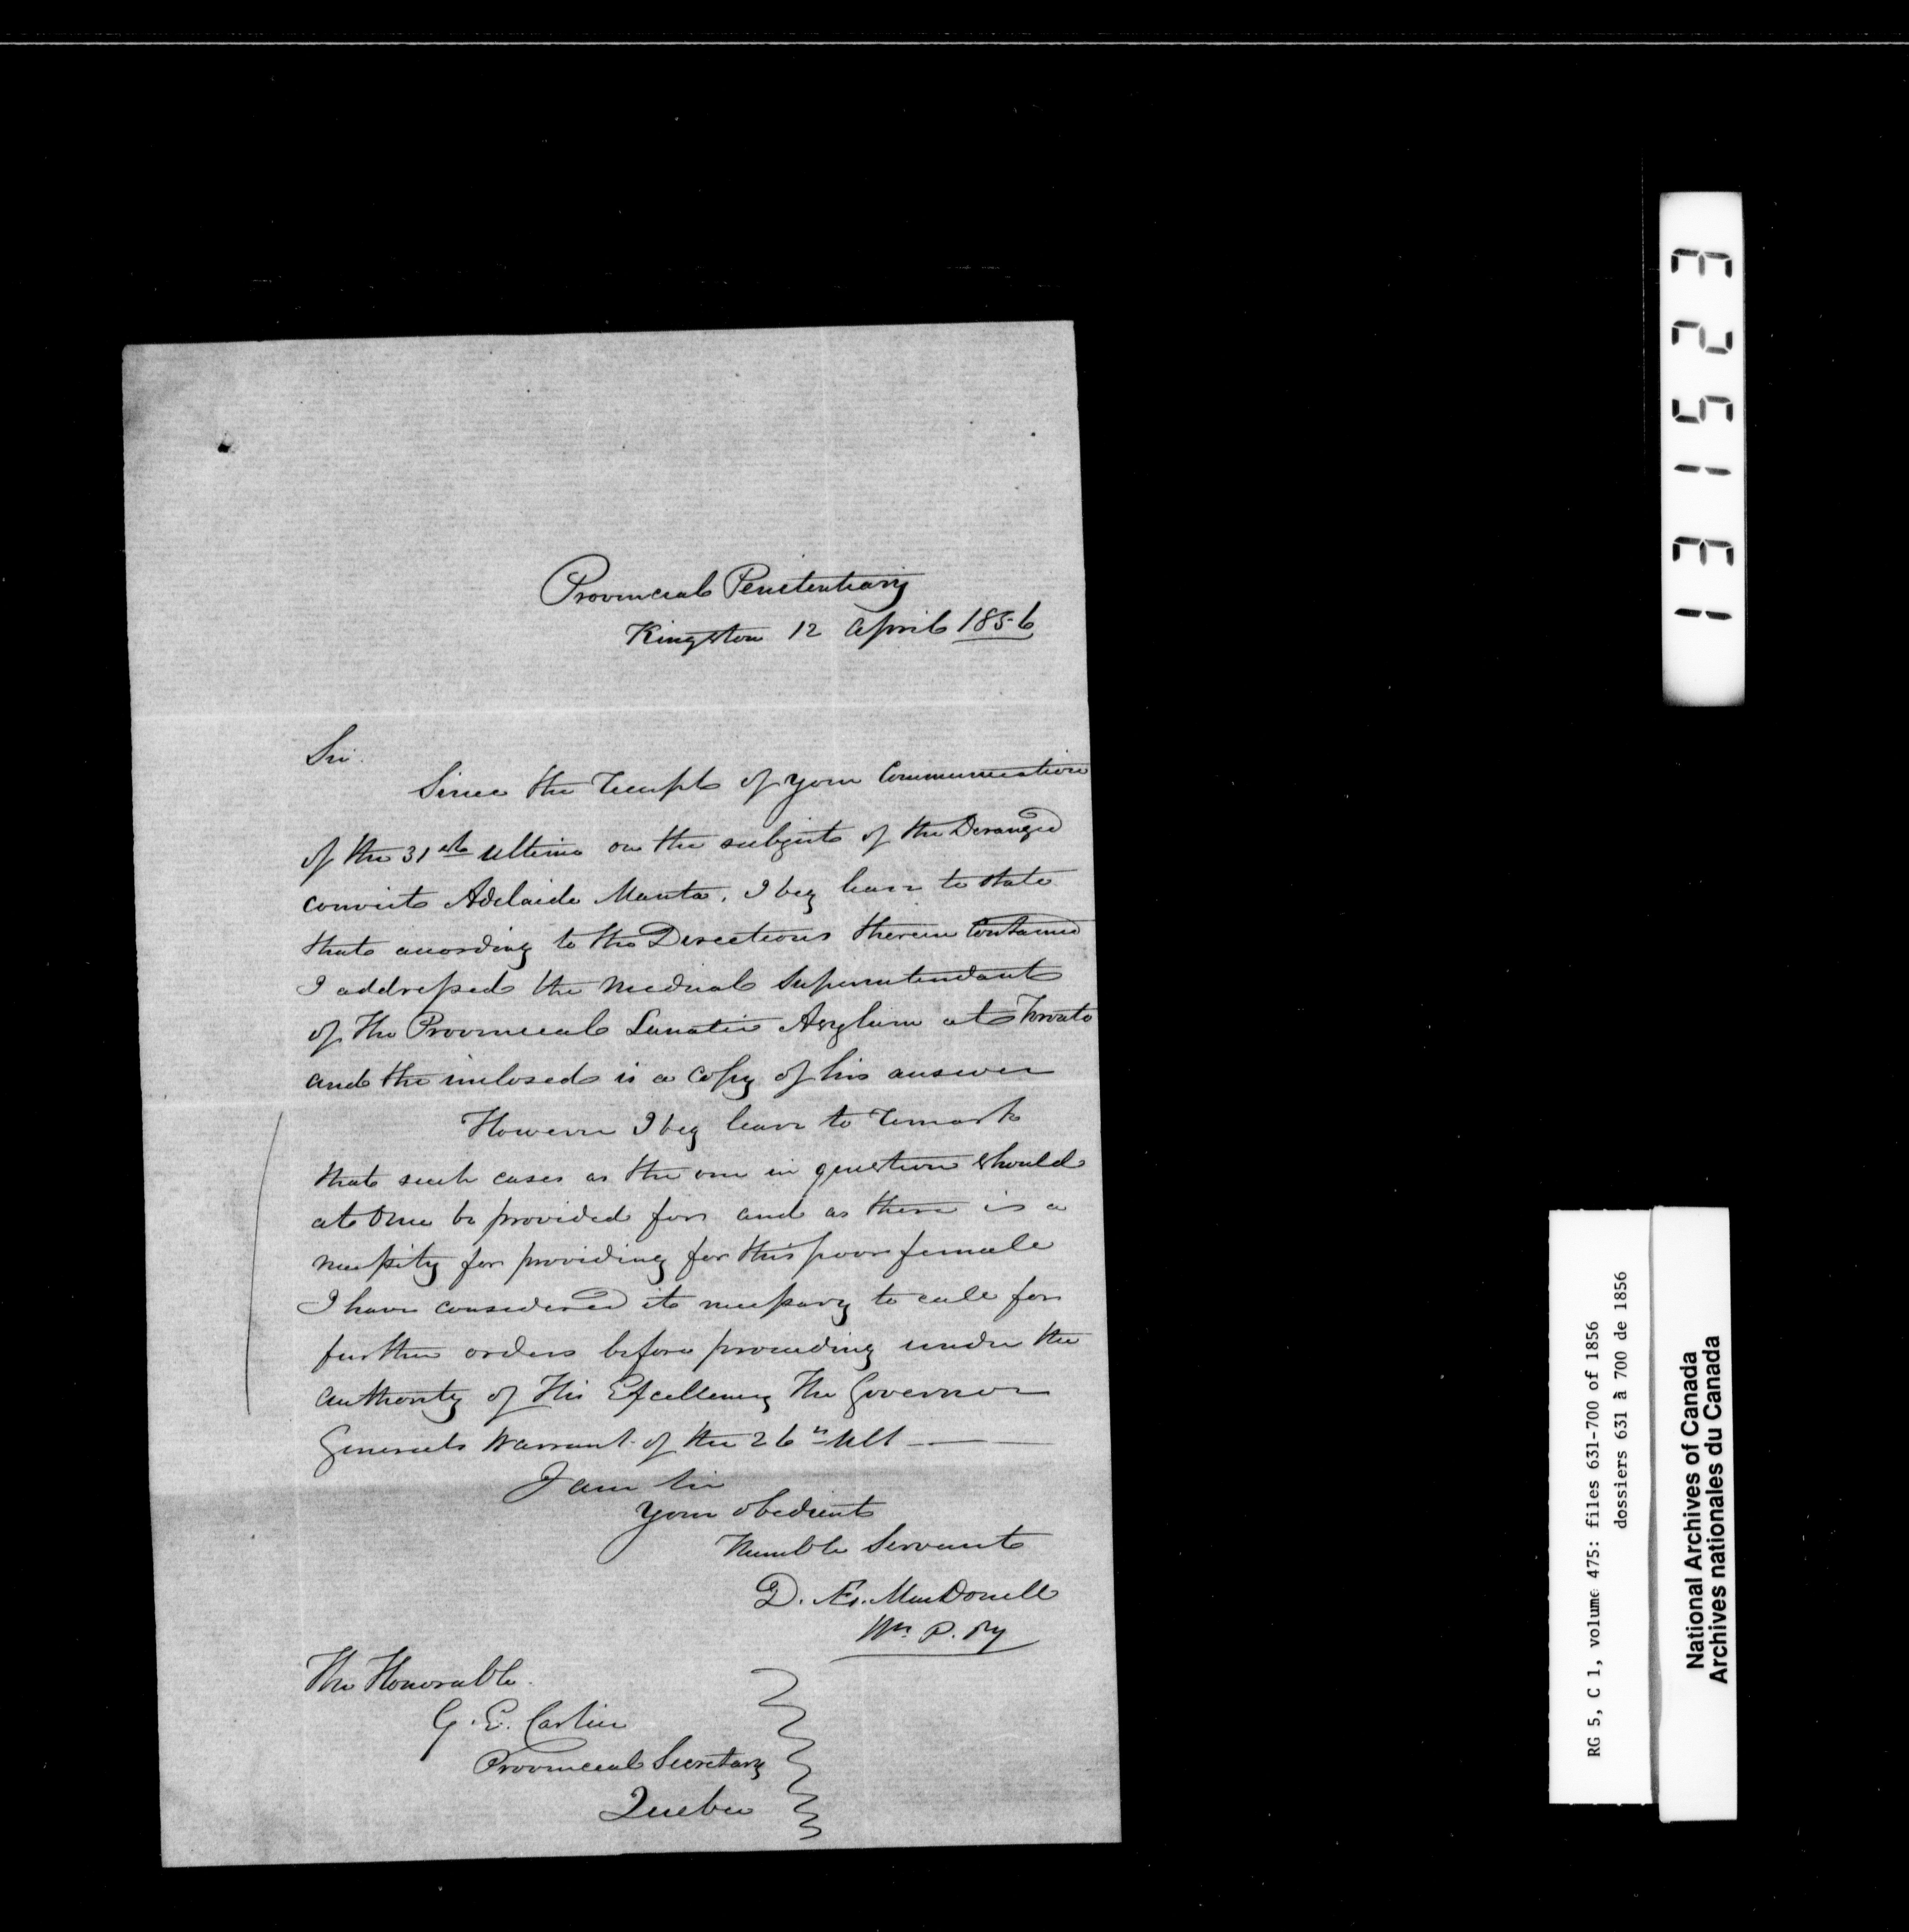 Provincial Penitentiary
Kingston 12 April 1856
Sir.
Since the receipt of your Communication
of the 31st ultimo on the subject of the Deranged
convict Adelaide Manta, I beg leave to state
that according to the Directions therein Contained
I addressed the Medical Superintendant
of the Provincial Lunatic Asylum at Toronto
and the inclosed is a copy of his answer
However I beg leave to remark
that such cases as the one in question should
at once be provided for and as there is a
necessity for providing for this poor female
I have considered it necessary to call for
further orders before proceeding under the
authority of His Excellency The Governor
Generals Warrant of the 26th Ult
I am Sir
Your obedient
Humble Servant
D. Æ. MacDonell
Wn P. Py
The Honorable
G. E. Cartier
Provincial Secretary
Quebec
131523
RG 5, C 1, volume 475: files 631-700 of 1856
dossiers 631 à 700 de 1856
National Archives of Canada
Archives nationales du Canada